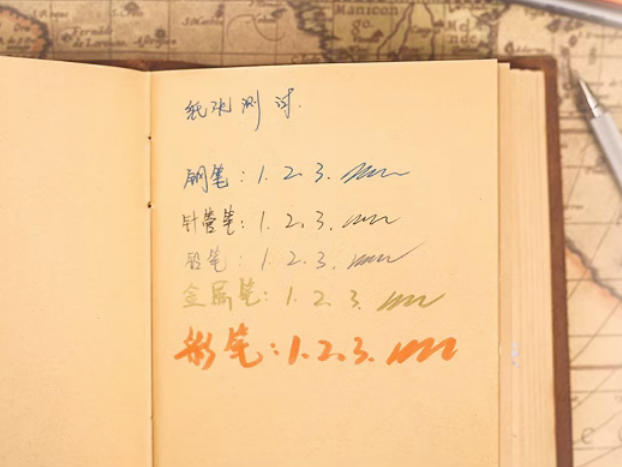 Manicongo.
纸张测试.
钢笔: 1. 2. 3.
针管笔: 1. 2. 3.
铅笔: 1. 2. 3.
金属笔: 1. 2. 3.
彩笔: 1. 2. 3.